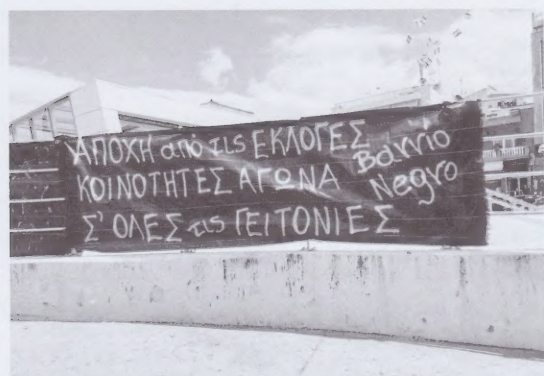 ΑΠΟΧΗ από τις ΕΚΛΟΓΕΣ
ΚΟΙΝΟΤΗΤΕΣ ΑΓΩΝΑ
Σ' ΟΛΕΣ τις ΓΕΙΤΟΝΙΕΣ
Barrio
Negro